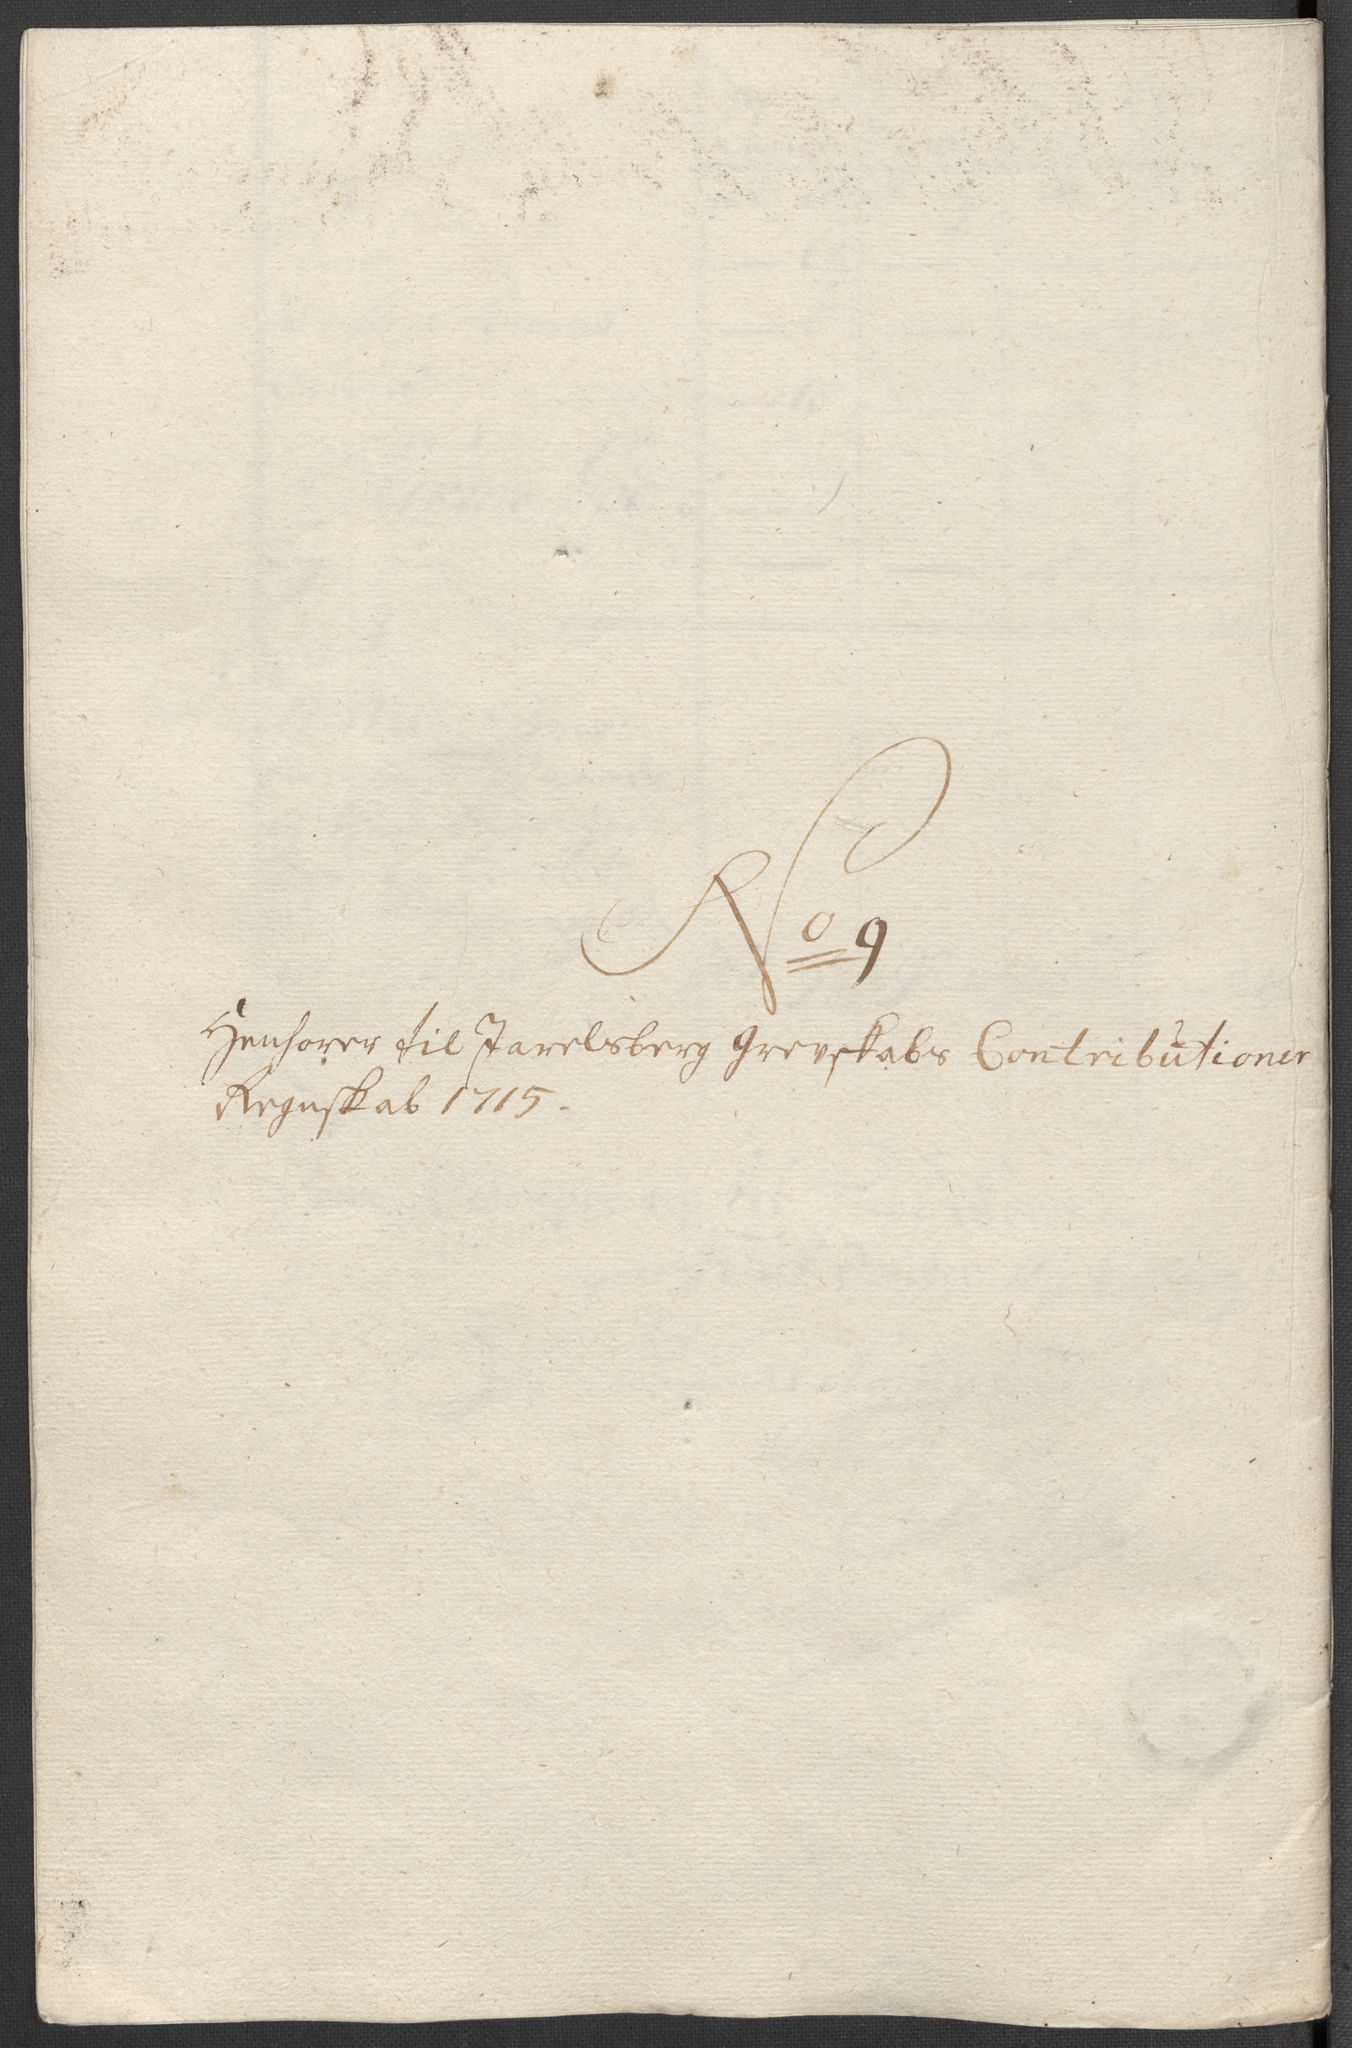 No 9
Henhører til Jarelsberg Grevskabs Contributioner
Regnskab 1715.